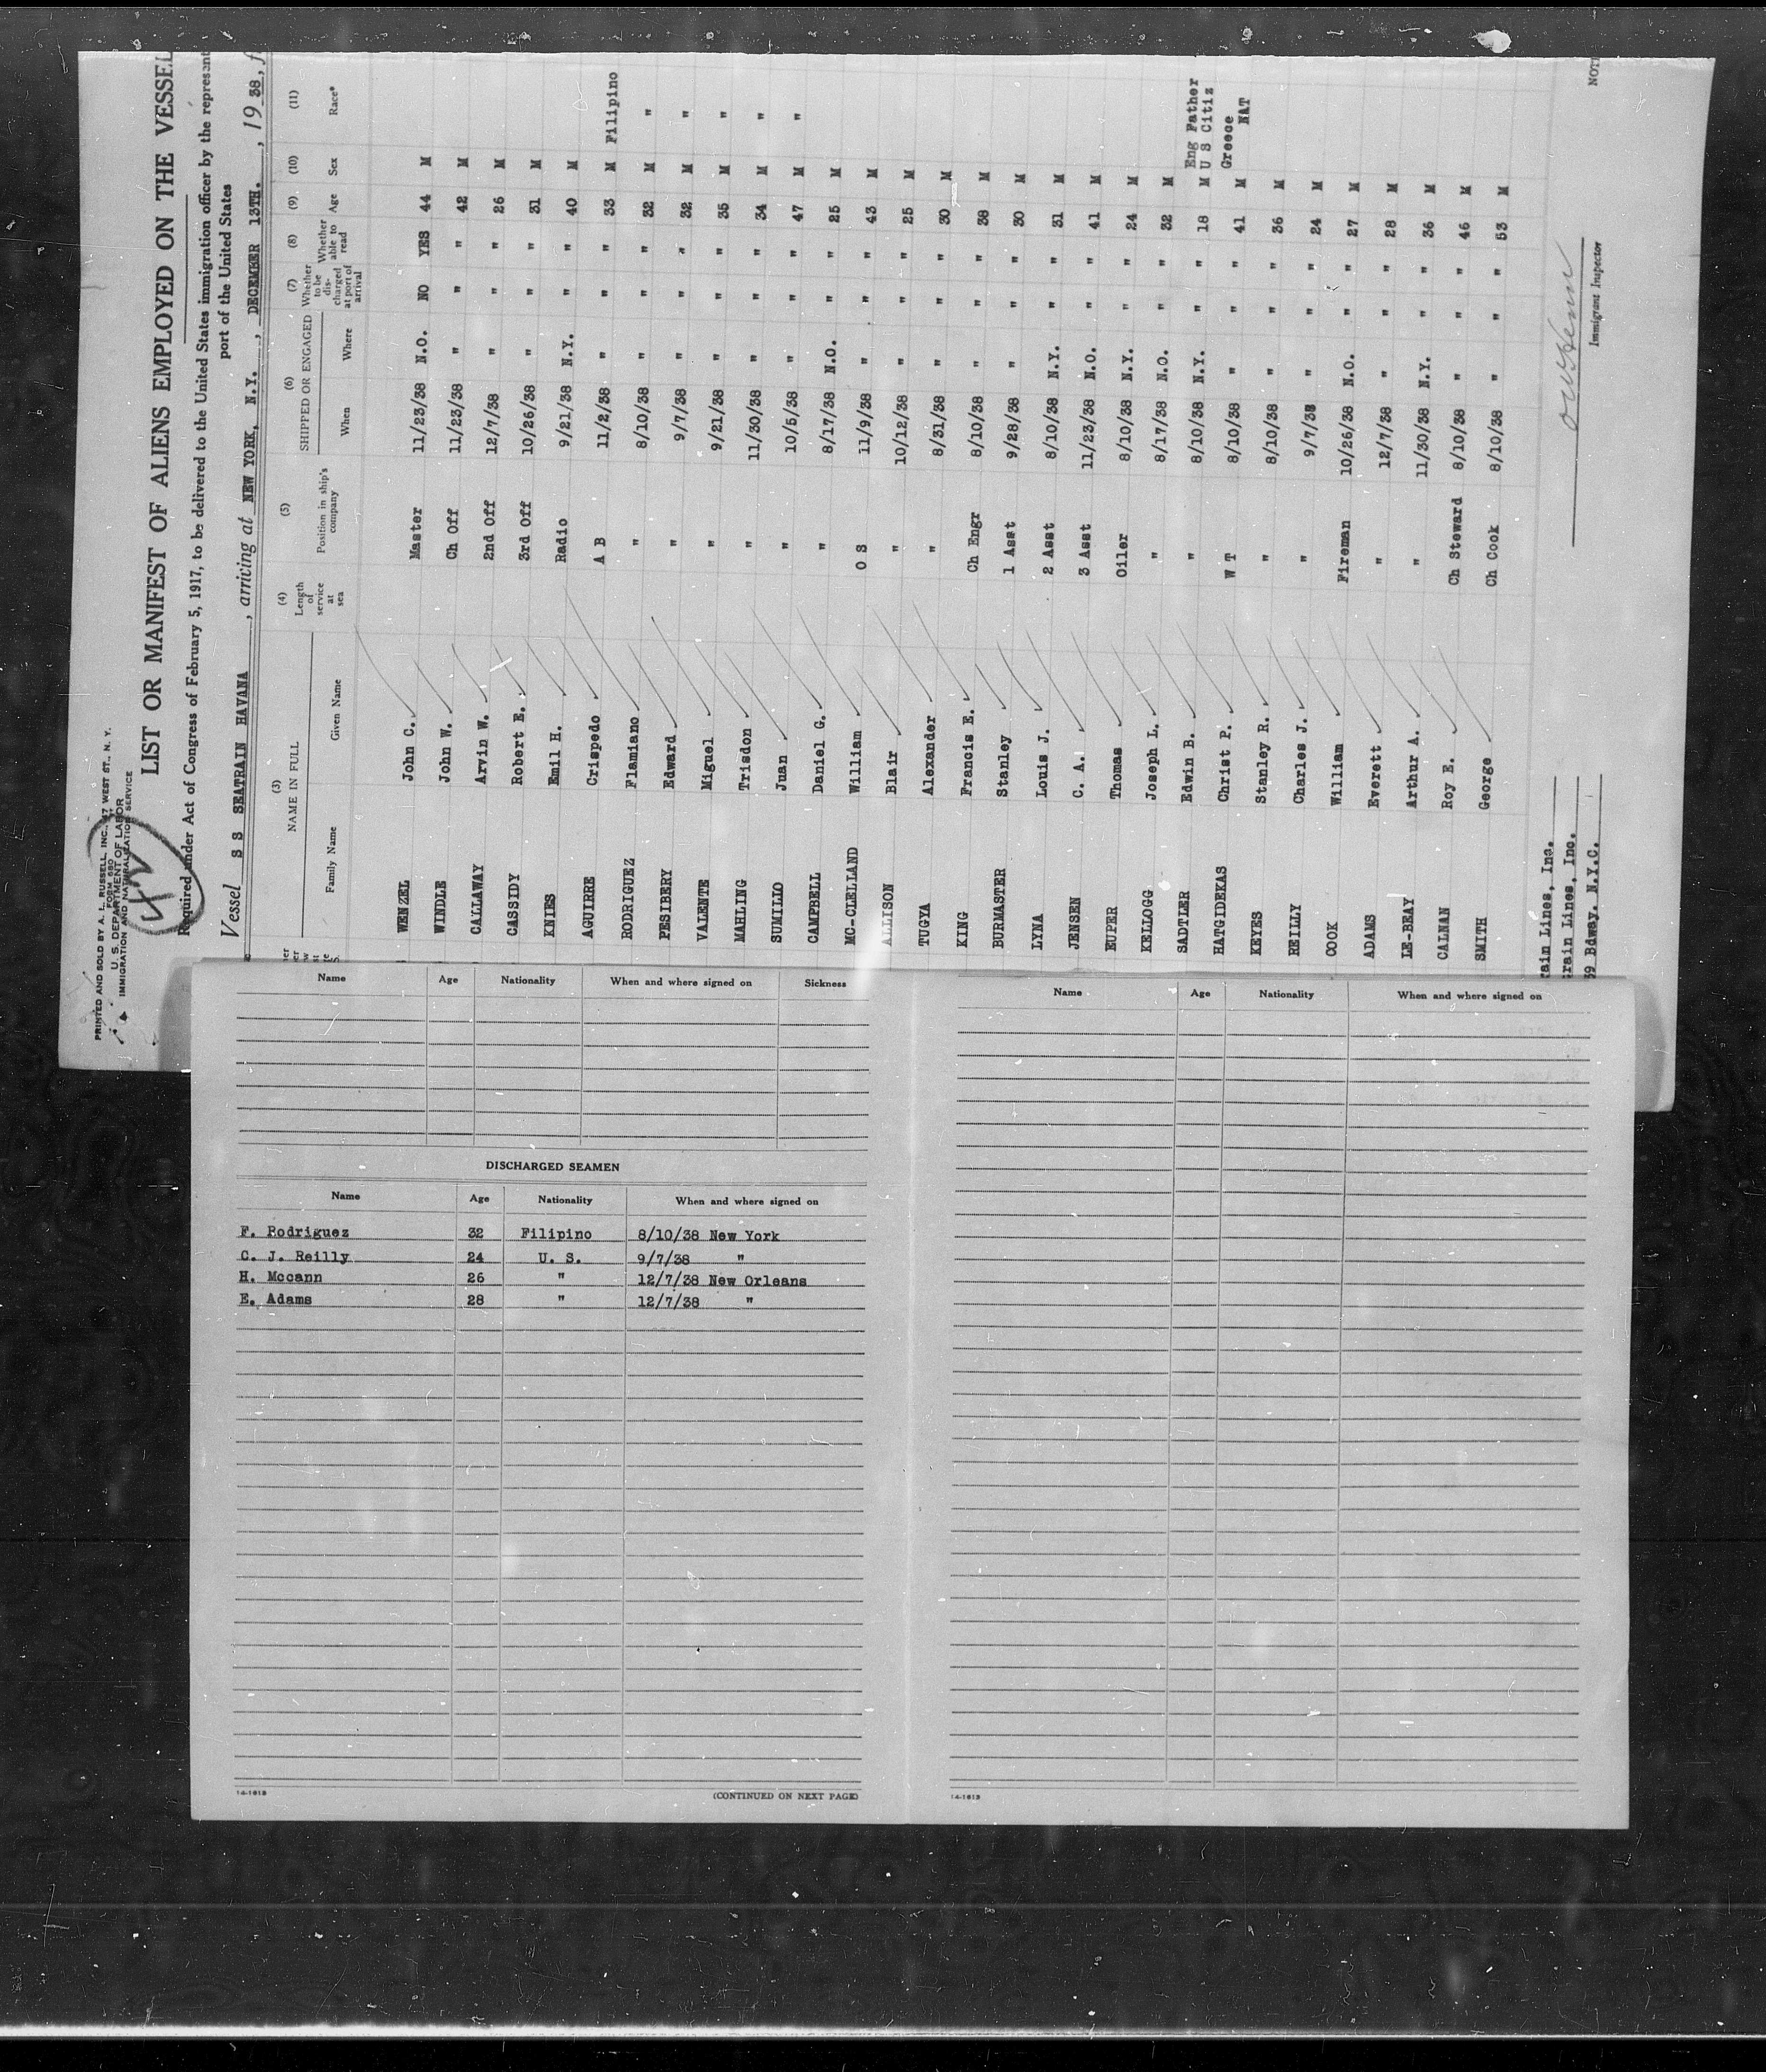 PRINTED AND SOLD BY A. L. RUSSELL, INC., 47 WEST ST., N. Y.
FORM 680
U. S. DEPARTMENT OF LABOR
IMMIGRATION AND NATURALIZATION SERVICE
LIST OR MANIFEST OF ALIENS EMPLOYED ON THE VESSEL
Required under Act of Congress of February 5, 1917, to be delivered to the United States immigration officer by the represent
port of the United States
Vessel S S SEATRAIN HAVANA, arriving at NEW YORK, N.Y., DECEMBER 13TH., 1938, f
(3) (4) (5) (6) (7) (8) (9) (10) (11)
NAME IN FULL Length of service at sea Position in ship's company SHIPPED OR ENGAGED Whether to be discharged at port of arrival Whether able to read Age Sex Race*
Family Name Given Name When Where
WENZEL John C. Master 11/23/38 N.O. NO YES 44 M
WINDLE John W. Ch Off 11/23/38 " " " 42 M
CALLAWAY Arvin W. 2nd Off 12/7/38 " " " 26 M
CASSIDY Robert E. 3rd Off 10/26/38 " " " 31 M
KNIES Emil H. Radio 9/21/38 N.Y. " " 40 M
AGUIRRE Crispedo A B 11/2/38 " " " 33 M Filipino
RODRIGUEZ Flamiano " 8/10/38 " " " 32 M "
PESIBERY Edward " 9/7/38 " " " 32 M "
VALENTE Miguel " 9/21/38 " " " 35 M "
MAHLING Trisdon " 11/30/38 " " " 34 M "
SUMILLO Juan " 10/5/38 " " " 47 M "
CAMPBELL Daniel G. " 8/17/38 N.O. " " 25 M
MC-CLELLAND William O S 11/9/38 " " " 43 M
ALLISON Blair " 10/12/38 " " " 25 M
TUGYA Alexander " 8/31/38 " " " 30 M
KING Francis E. Ch Engr 8/10/38 " " " 38 M
BURMASTER Stanley 1 Asst 9/28/38 " " " 30 M
LYNA Louis J. 2 Asst 8/10/38 N.Y. " " 31 M
JENSEN C. A. 3 Asst 11/23/38 N.O. " " 41 M
EUPER Thomas Oiler 8/10/38 N.Y. " " 24 M
KELLOGG Joseph L. " 8/17/38 N.O. " " 32 M
SADTLER Edwin B. " 8/10/38 N.Y. " " 18 M Eng Father U S Citiz
HATGIDEKAS Christ P. W T 8/10/38 " " " 41 M Greece NAT
KEYES Stanley R. " 8/10/38 " " " 36 M
REILLY Charles J. " 9/7/38 " " " 24 M
COOK William Fireman 10/26/38 N.O. " " 27 M
ADAMS Everett " 12/7/38 " " " 28 M
LE-BEAY Arthur A. " 11/30/38 N.Y. " " 36 M
CALNAN Roy E. Ch Steward 8/10/38 " " " 46 M
SMITH George Ch Cook 8/10/38 " " " 53 M
rain Lines, Inc.
rain Lines, Inc.
39 Bdway. N.Y.C.
Immigrant Inspector
NOTE
Name Age Nationality When and where signed on Sickness
DISCHARGED SEAMEN
Name Age Nationality When and where signed on
F. Rodriguez 32 Filipino 8/10/38 New York
C. J. Reilly 24 U. S. 9/7/38 "
H. Mccann 26 " 12/7/38 New Orleans
E. Adams 28 " 12/7/38 "
14-1613 (CONTINUED ON NEXT PAGE)
Name Age Nationality When and where signed on
14-1613